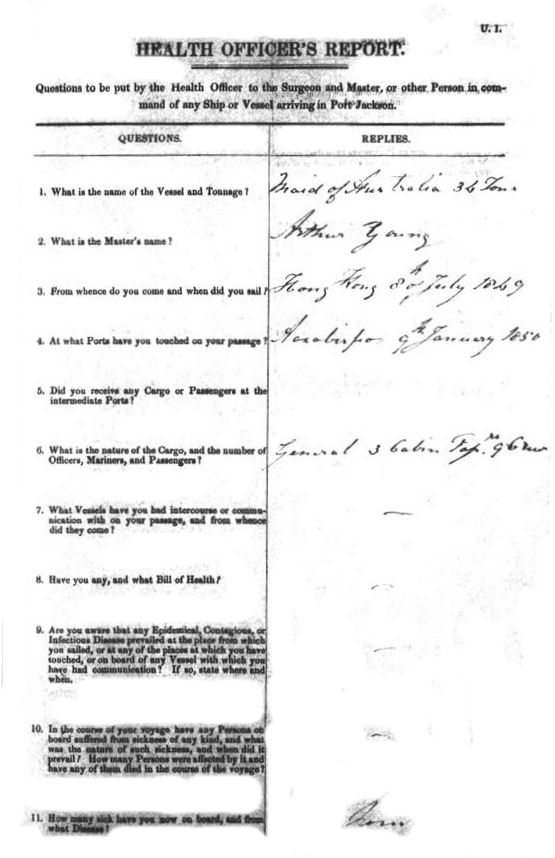 U. 1.
HEALTH OFFICER'S REPORT.
Questions to be put by the Health Officer to the Surgeon and Master, or other Person in com-
mand of any Ship or Vessel arriving in Port Jackson.
QUESTIONS. REPLIES.
1. What is the name of the Vessel and Tonnage? Maid of Australia 36 Tons
2. What is the Master's name? Arthur Young
3. From whence do you come and when did you sail? Hong Kong 8th of July 1849
4. At what Ports have you touched on your passage? 9th January 1850
5. Did you receive any Cargo or Passengers at the
intermediate Ports?
6. What is the nature of the Cargo, and the number of General 3 Cabin
Officers, Mariners, and Passengers?
7. What Vessels have you had intercourse or commu-
nication with on your passage, and from whence —
did they come?
8. Have you any, and what Bill of Health? —
9. Are you aware that any Epidemical, Contagious, or
Infectious Disease prevailed at the place from which
you sailed, or at any of the places at which you have —
touched, or on board of any Vessel with which you
have had communication? If so, state where and
when.
10. In the course of your voyage have any Persons on
board suffered from sickness of any kind, and what —
was the nature of such sickness, and when did it
prevail? How many Persons were affected by it and
have any of them died in the course of the voyage?
11. How many sick have you now on board, and from None
what Disease?